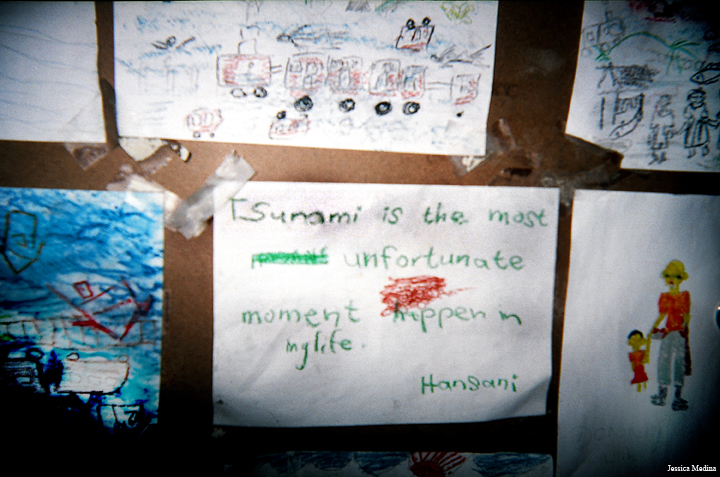 Tsunami is the most
unfortunate
moment happen in
my life.
Hansani
Jessica Medina